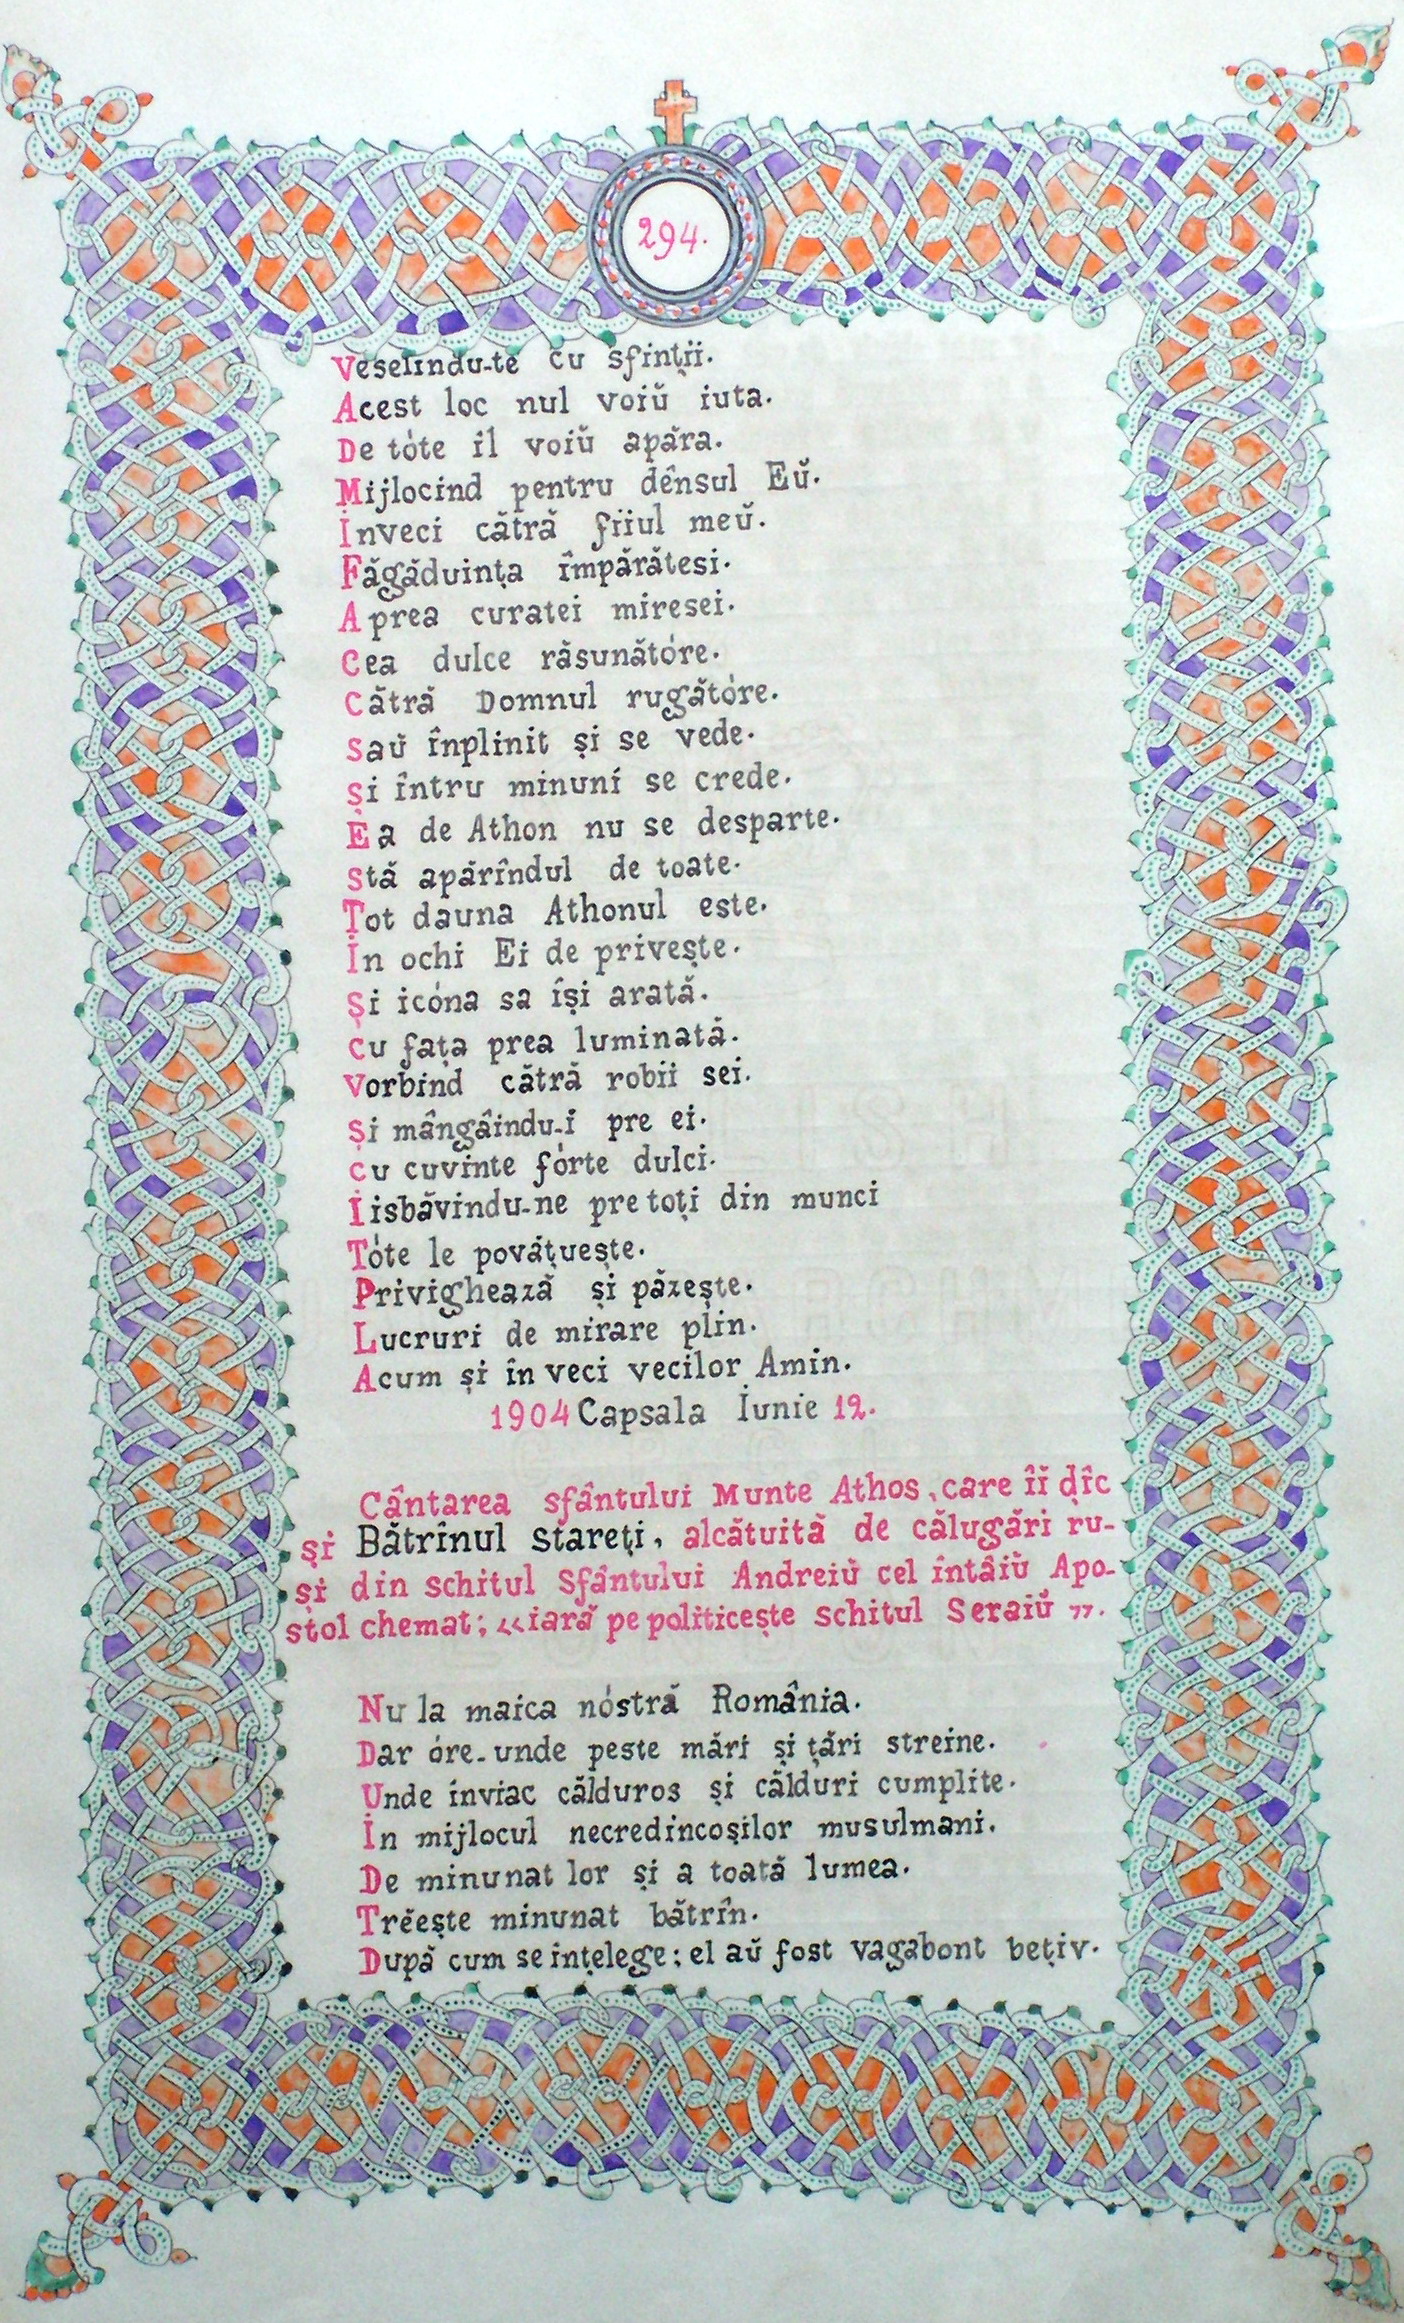 294.
Veselindu-te cu sfinții.
Acest loc nul voiŭ iuta.
De tóte il voiŭ apăra.
Mijlocind pentru dênsul Eŭ.
În veci cătră fiiul meŭ.
Făgăduința împărătesi.
A prea curatei miresei.
Cea dulce răsunătóre.
Cătră Domnul rugătóre.
Saŭ înplinit și se vede.
Și întru minuni se crede.
Ea de Athon nu se desparte.
Stă apărîndul de toate.
Tot dauna Athonul este.
În ochi Ei de privește.
Și icóna sa își arată.
Cu fața prea luminată.
Vorbind cătră robii sei.
Și mângâindu-i pre ei.
Cu cuvinte fórte dulci.
Iisbăvindu-ne pre toți din munci
Tóte le povățuește.
Privighează și păzește.
Lucruri de mirare plin.
Acum și în veci vecilor Amin.
1904 Capsala Iunie 12.
Cântarea sfântului Munte Athos, care îi dîc
și Bătrînul stareți, alcătuită de călugări ru-
și din schitul Sfântului Andreiŭ cel întâiŭ Apo-
stol chemat; «iară pe politicește schitul Seraiŭ».
Nu la maica nóstră România.
Dar óre-unde peste mări și țări streine.
Unde înviac călduros și călduri cumplite.
În mijlocul necredincoșilor musulmani.
De minunat lor și a toată lumea.
Trĕește minunat bătrîn.
După cum se înțelege; el aŭ fost vagabont bețiv.